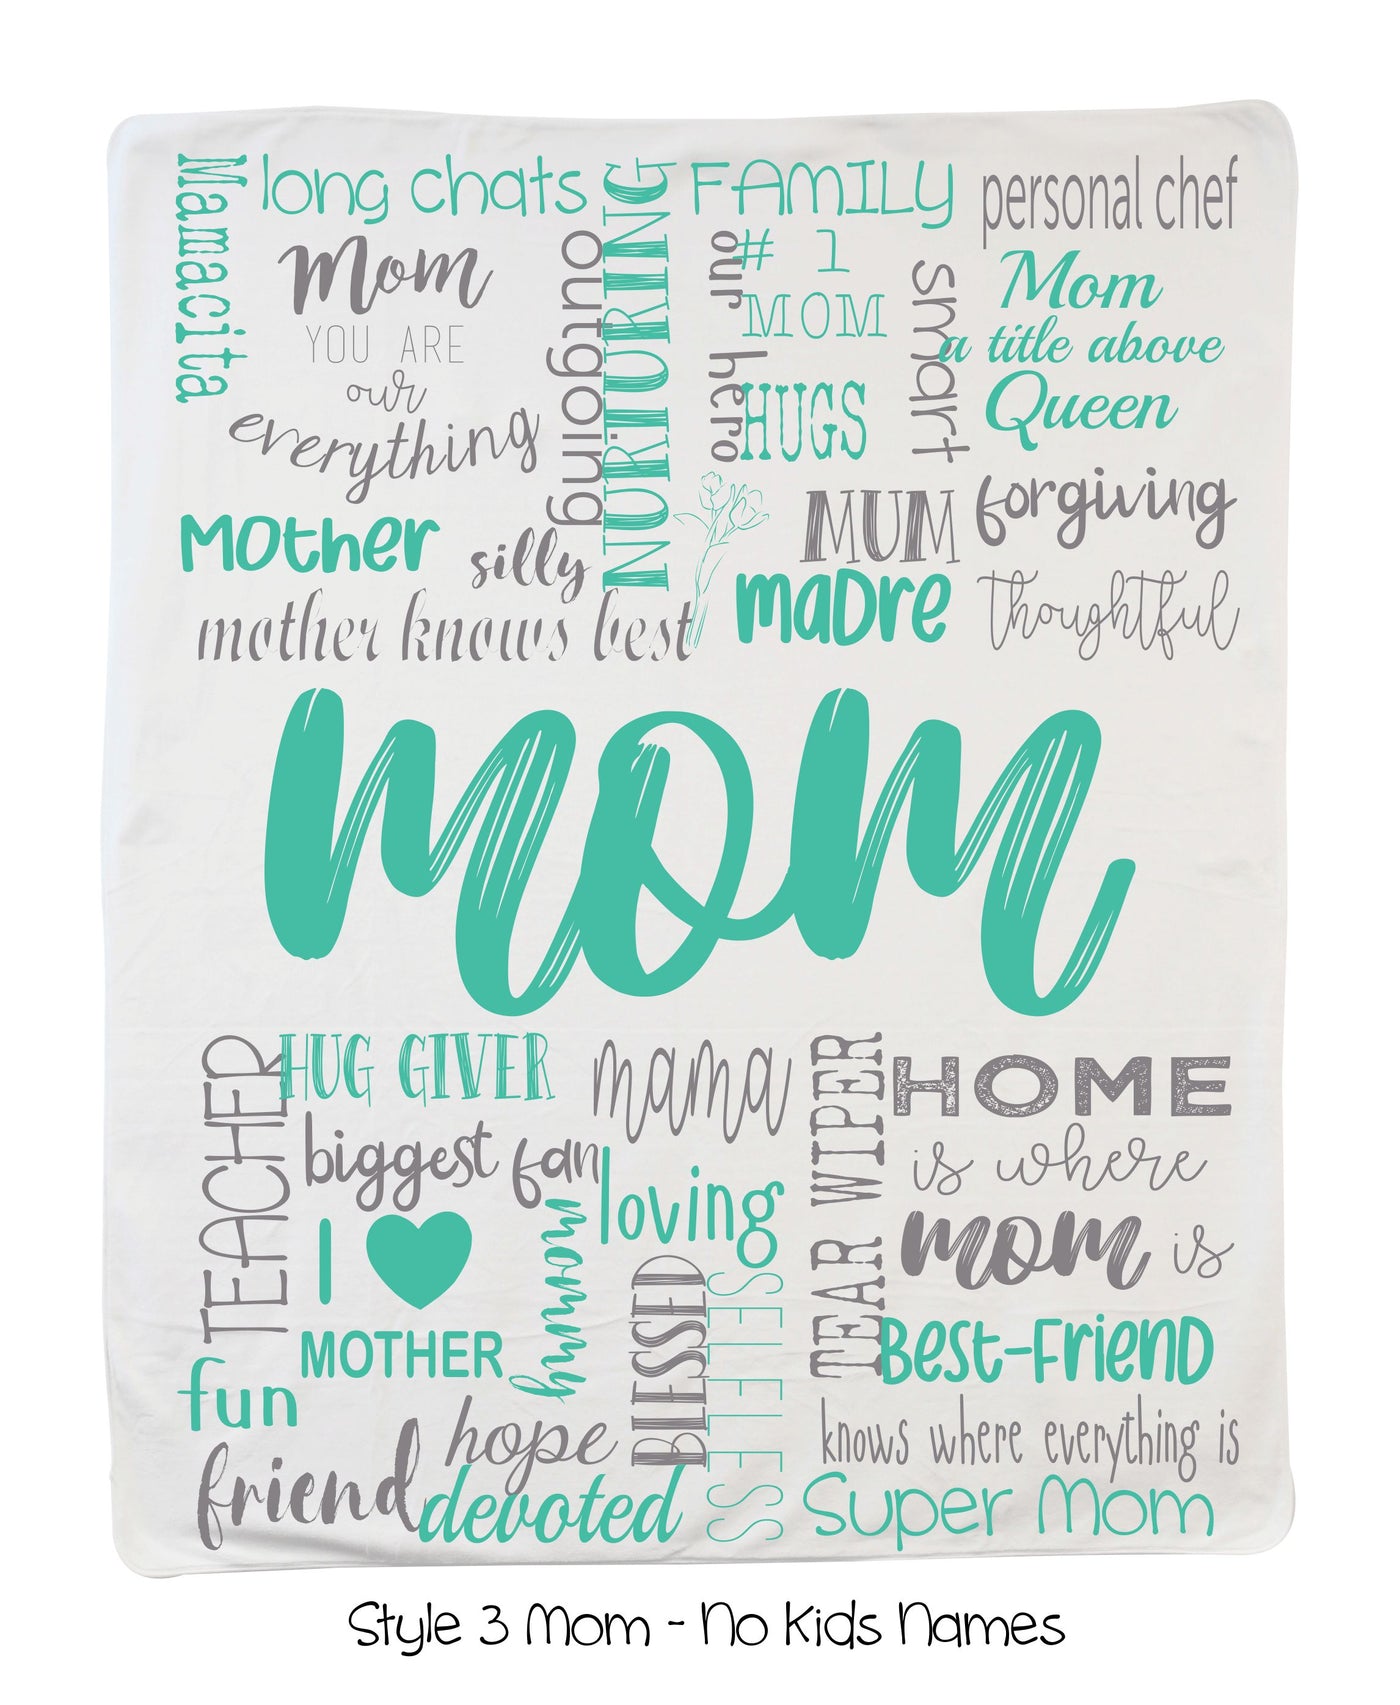 Mamacita
long chats
NURTURING
FAMILY
personal chef
Mom
YOU ARE
our
everything
outgoing
our hero
# 1
MOM
HUGS
smart
Mom
a title above
Queen
Mother
silly
MUM
forgiving
mother knows best
madre
thoughtful
mom
TEACHER
HUG GIVER
mama
TEAR WIPER
HOME
is where
mom is
biggest fan
loving
I ♥
MOTHER
mommy
BLESSED
SELFLESS
Best-Friend
fun
hope
knows where everything is
friend
devoted
Super Mom
Style 3 Mom - No Kids Names